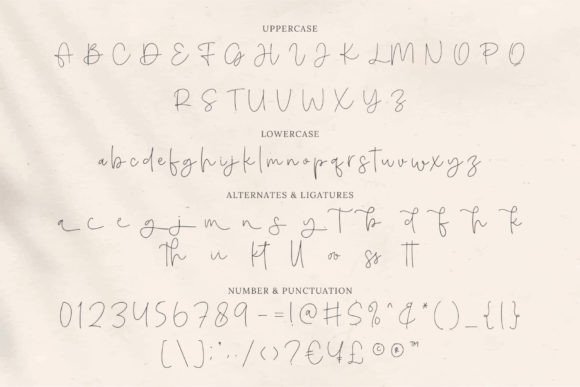 UPPERCASE
A B C D E F G H I J K L M N O P Q
R S T U V W X Y Z
LOWERCASE
a b c d e f g h i j k l m n o p q r s t u v w x y z
ALTERNATES & LIGATURES
a c e g j m n s y T b d f h k
Th u kt ll oo ss tt
NUMBER & PUNCTUATION
0 1 2 3 4 5 6 7 8 9 - = ! @ # $ % ^ & * ( ) _ { | }
[ \ ] ; ' , . / < > ? € ¥ £ © ® ™